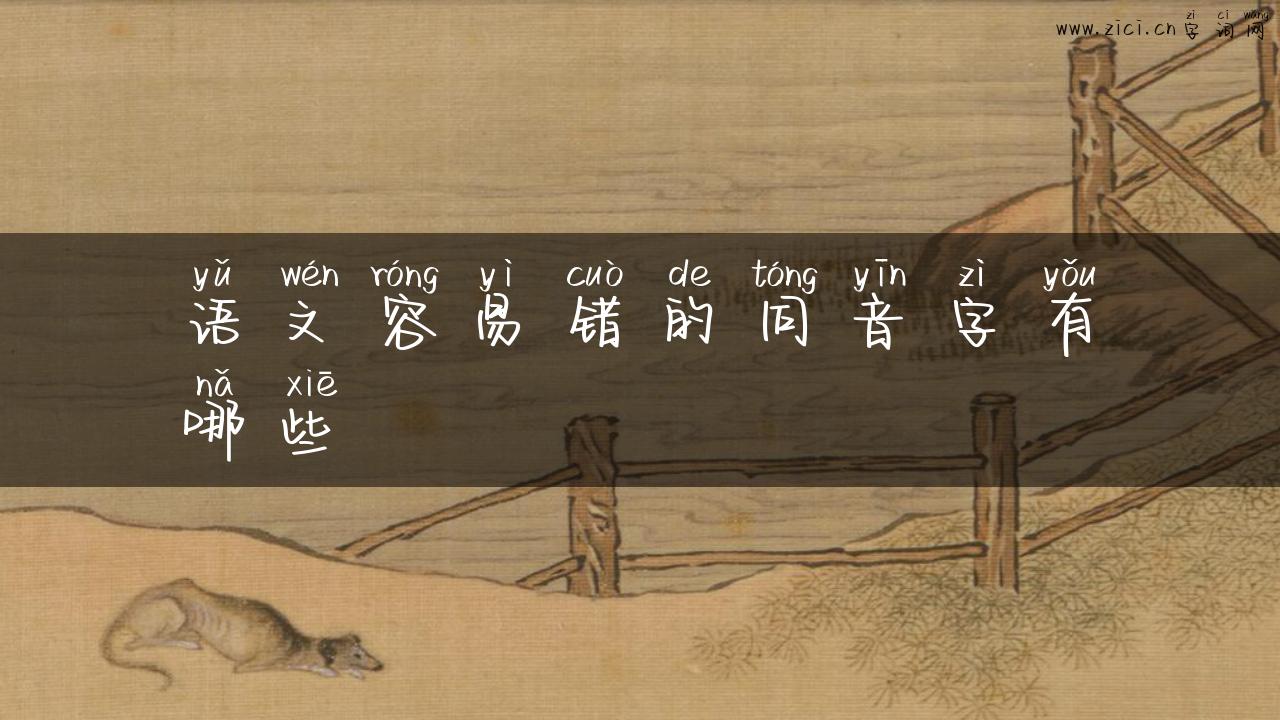 zì cí wǎng
www.zici.cn字词网
yǔ wén róng yì cuò de tóng yīn zì yǒu
语文容易错的同音字有
nǎ xiē
哪些